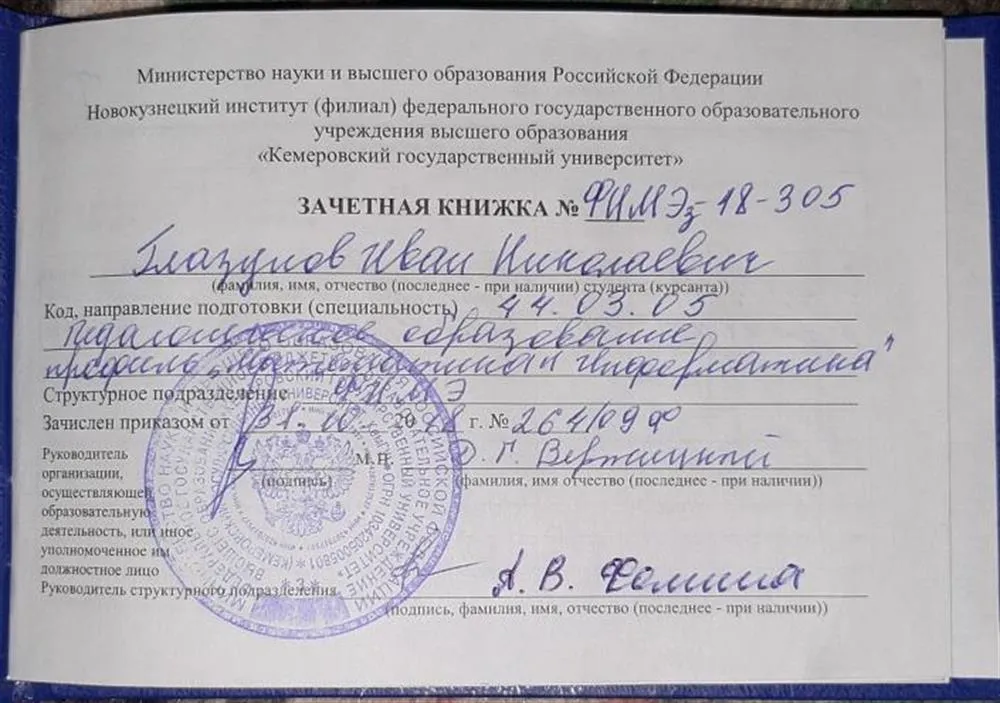 Министерство науки и высшего образования Российской Федерации
Новокузнецкий институт (филиал) федерального государственного образовательного
учреждения высшего образования
«Кемеровский государственный университет»
ЗАЧЕТНАЯ КНИЖКА № ФИМЭз-18-305
Глазунов Иван Николаевич
(фамилия, имя, отчество (последнее - при наличии) студента (курсанта))
Код, направление подготовки (специальность) 44.03.05
Педагогическое образование
профиль "Математика и Информатика"
Структурное подразделение ФИМЭ
Зачислен приказом от 31. 2018 г. №
Руководитель М.П. Вержицкий
организации, (подпись) (фамилия, имя отчество (последнее - при наличии))
осуществляющей
образовательную
деятельность, или иное
уполномоченное им
должностное лицо
Руководитель структурного подразделения А. В. Фомина
(подпись, фамилия, имя, отчество (последнее - при наличии))